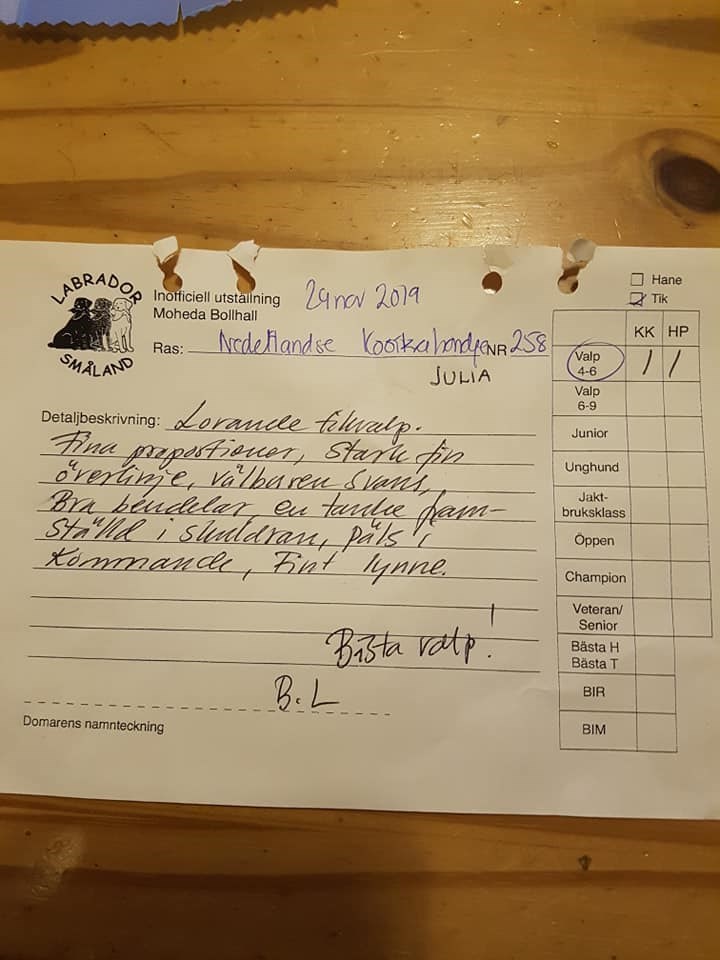 LABRADOR
SMÅLAND
Inofficiell utställning
Moheda Bollhall
29 nov 2019
Ras: Nedellandse Kooikahondje NR 258
JULIA
Hane
Tik
KK HP
Valp 4-6 1 1
Valp 6-9
Junior
Unghund
Jakt-
bruksklass
Öppen
Champion
Veteran/
Senior
Bästa H
Bästa T
BIR
BIM
Detaljbeskrivning: Lovande tikvalp.
Fina proportioner, Stark fin
överlinje, välburen svans,
Bra bendelar, en tanke fram-
ställd i skuldran, päls i
kommande, Fint lynne.
Bästa valp!
B.L
Domarens namnteckning